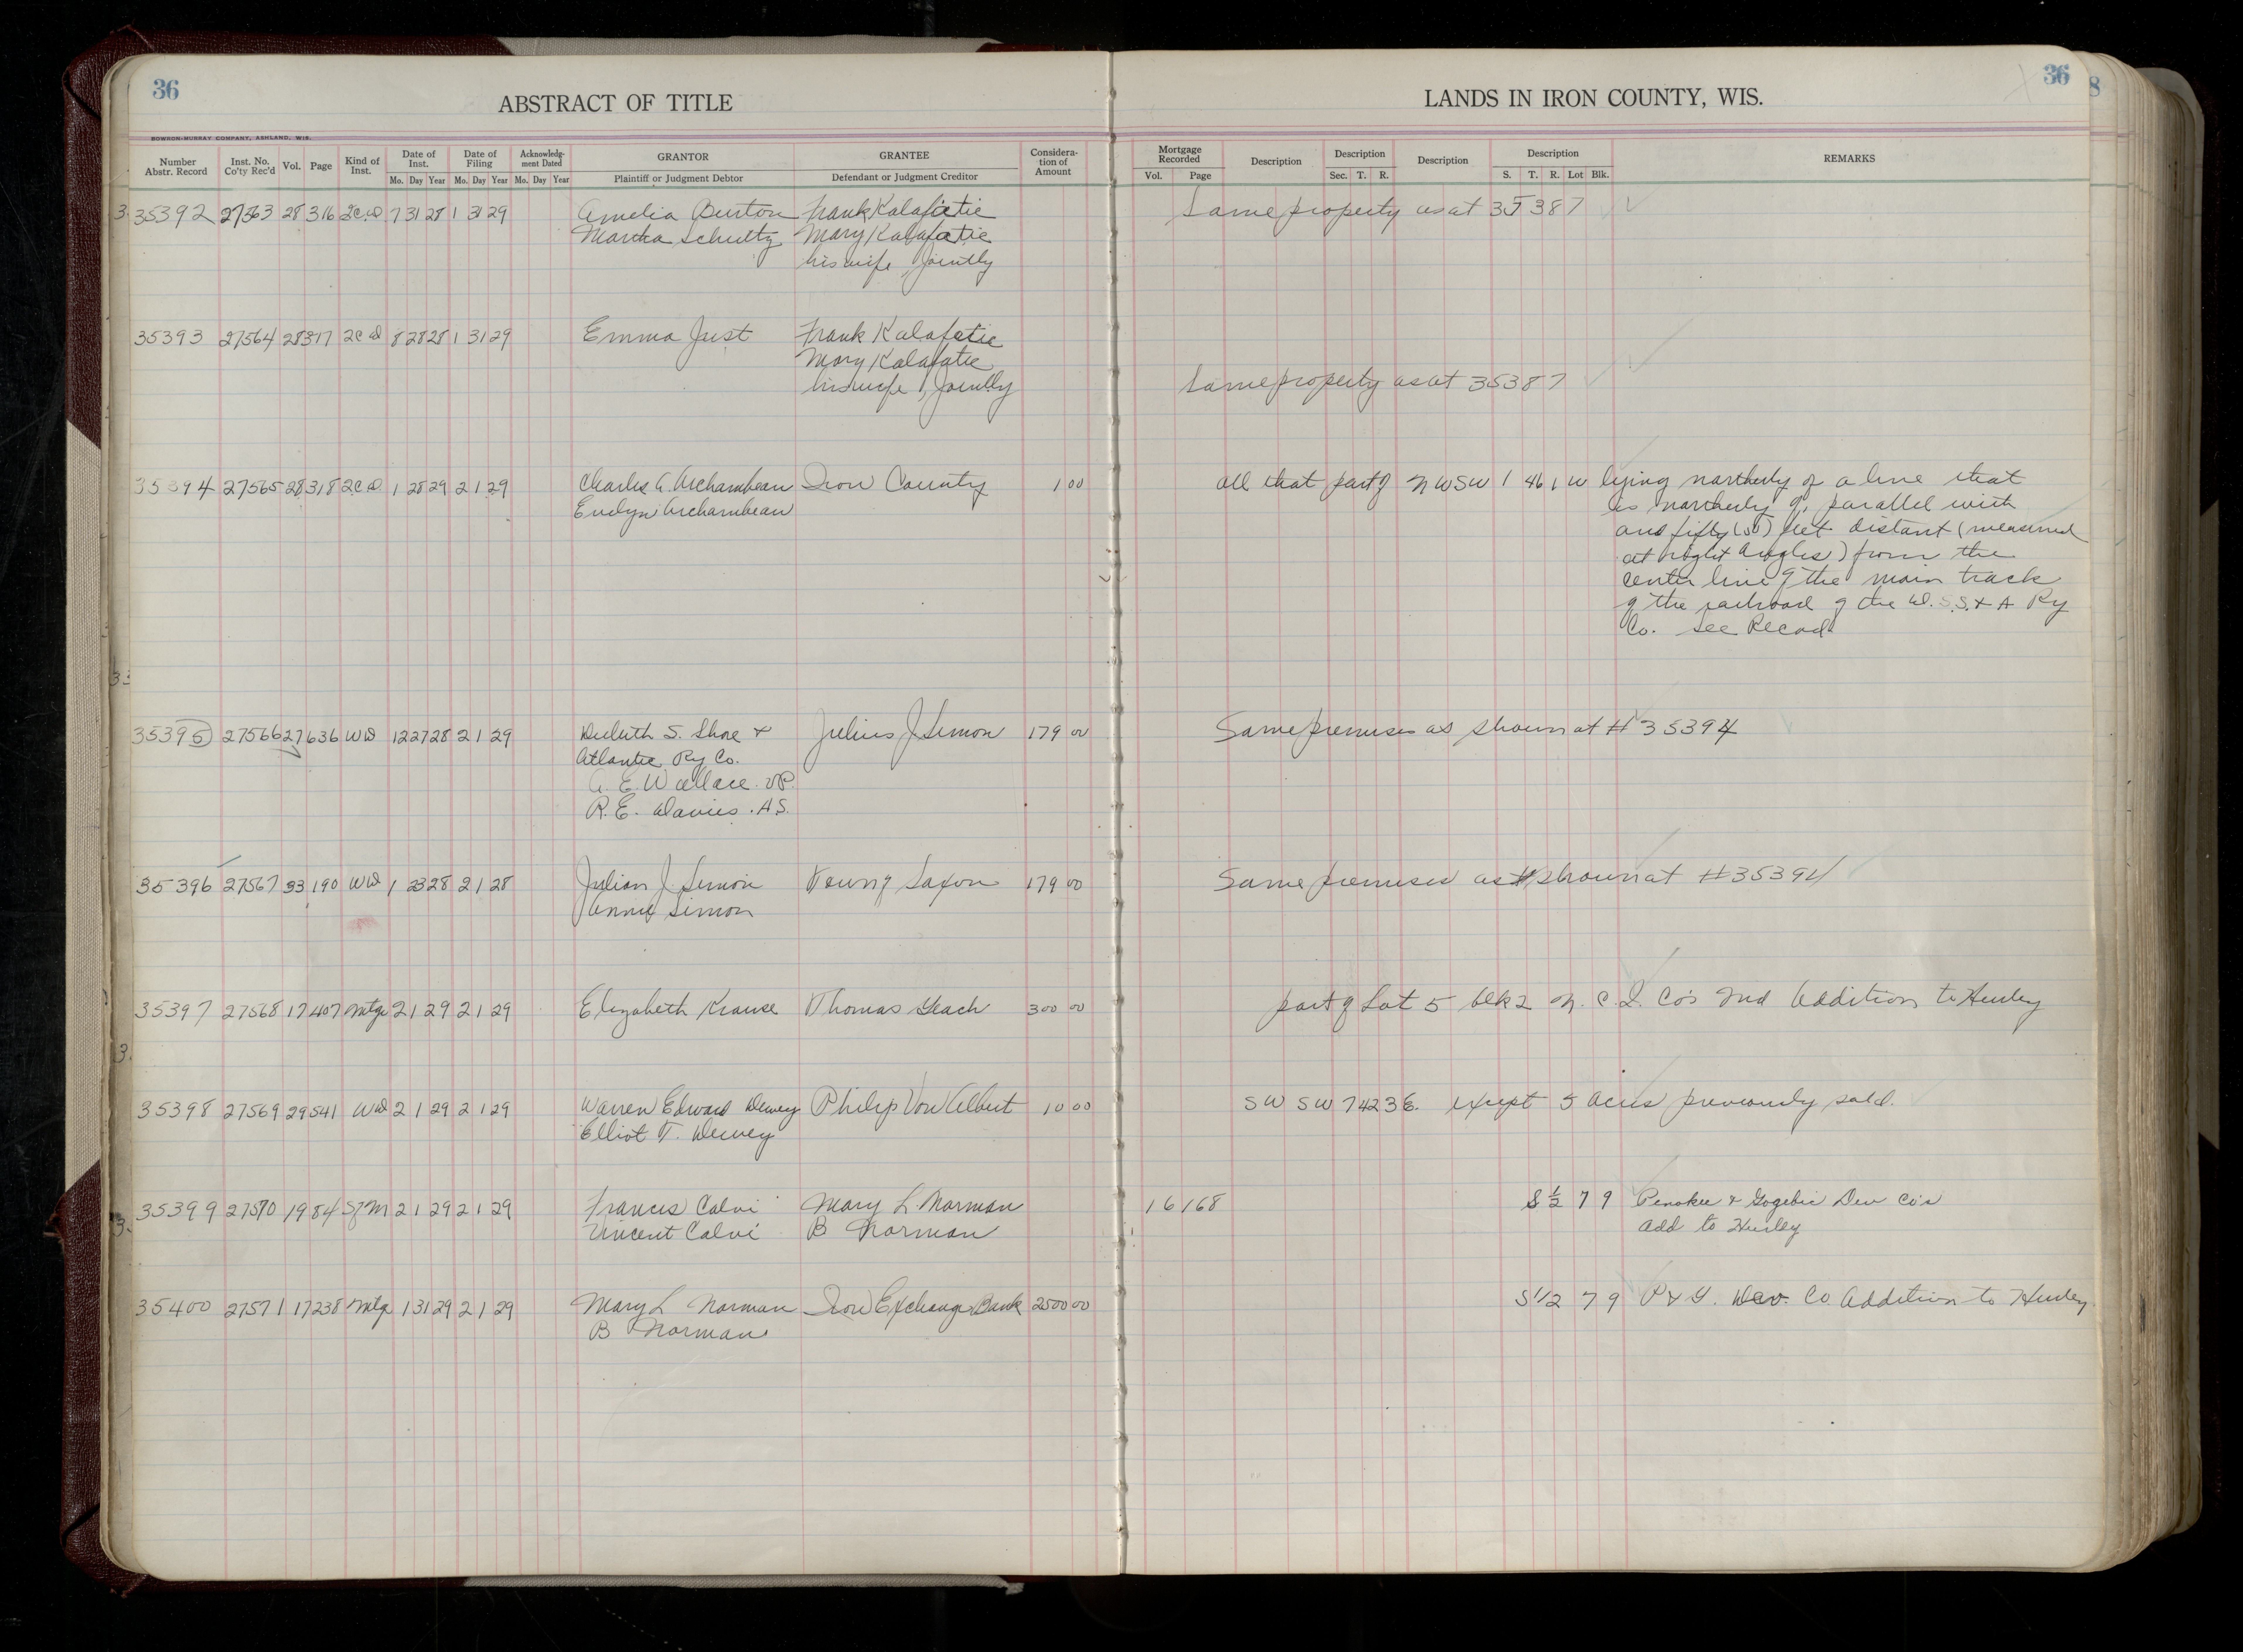 36
ABSTRACT OF TITLE
LANDS IN IRON COUNTY, WIS.
36
8
BOWRON-MURRAY COMPANY, ASHLAND, WIS.
Number Abstr. Record Inst. No. Co'ty Rec'd Vol. Page Kind of Inst. Date of Inst. Mo. Day Year Date of Filing Mo. Day Year Acknowledgment Dated Mo. Day Year GRANTOR Plaintiff or Judgment Debtor GRANTEE Defendant or Judgment Creditor Consideration of Amount Mortgage Recorded Vol. Page Description Description Sec. T. R. Description Description S. T. R. Lot Blk. REMARKS
35392 27563 28 316 2CD 7 31 28 1 31 29 Amelia Burton Frank Kalafatic Same property as at 35387
Martha Schultz Mary Kalafatic
his wife, Jointly
35393 27564 28 317 2CD 8 28 28 1 31 29 Emma Just Frank Kalafatic
Mary Kalafatic
his wife, Jointly Same property as at 35387
35394 27565 28 318 2CD 1 28 29 2 1 29 Charles A. Archambeau Iron County 1 00 all that part of NWSW 1 46 1 W lying northerly of a line that
Evelyn Archambeau is northerly of, parallel with
and fifty (50) feet distant (measured
at right angles) from the
center line of the main track
of the railroad of the D.S.S. & A Ry
Co. See Record
35395 27566 27 636 WD 12 27 28 2 1 29 Duluth S. Shore & Julius J Simon 179 00 Same premises as shown at # 35394
Atlantic Ry Co.
A. E. Wallace. V.P.
R. E. Davies. A.S.
35396 27567 33 190 WD 1 23 28 2 1 28 Julian J. Simon Town of Saxon 179 00 Same premises as shown at # 35394
Annie Simon
35397 27568 17 407 Mtge 2 1 29 2 1 29 Elizabeth Krause Thomas 300 00 part of Lot 5 blk 2 N. C. I. Co's 2nd Addition to Hurley
35398 27569 29 541 WD 2 1 29 2 1 29 Warren Edward Dewey Philip Von Albert 10 00 SW SW 7 42 3 E. except 5 acres previously sold.
Elliot T. Dewey
35399 27570 19 84 SfM 2 1 29 2 1 29 Francis Calvi Mary L. Norman 16 168 S 1/2 7 9 Penokee & Gogebic Dev Co's
Vincent Calvi B Norman Add to Hurley
35400 27571 17 238 Mtge 1 31 29 2 1 29 Mary L Norman Iron Exchange Bank 2500 00 S 1/2 7 9 P & G. Dev. Co Addition to Hurley
B Norman